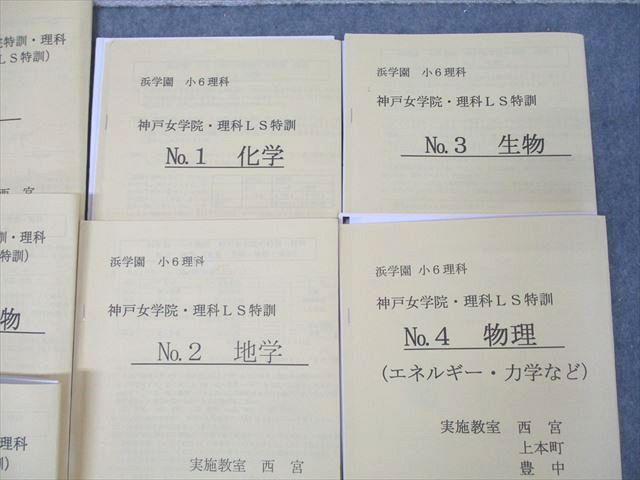 特訓・理科
LS特訓）
西 宮
訓・理科
特訓）
物
理科
）
浜学園 小６理科
神戸女学院・理科ＬＳ特訓
No.1 化学
浜学園 小６理科
神戸女学院・理科ＬＳ特訓
No.3 生物
浜学園 小６理科
神戸女学院・理科ＬＳ特訓
No.2 地学
実施教室 西 宮
浜学園 小６理科
神戸女学院・理科ＬＳ特訓
No.4 物理
（エネルギー・力学など）
実施教室 西 宮
上本町
豊 中